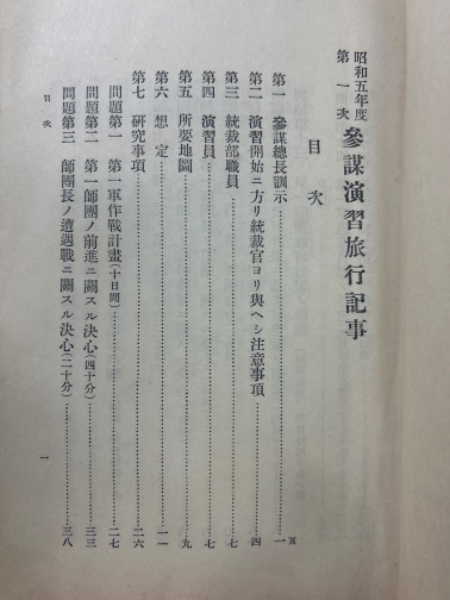 昭和五年度
第一次
參謀演習旅行記事
目次
頁
第一 參謀總長訓示……一
第二 演習開始ニ方リ統裁官ヨリ與ヘシ注意事項……四
第三 統裁部職員……七
第四 演習員……七
第五 所要地圖……九
第六 想定……一一
第七 研究事項……二六
問題第一 第一軍作戰計畫(十日間)……二七
問題第二 第一師團ノ前進ニ關スル決心(四十分)……三三
問題第三 師團長ノ遭遇戰ニ關スル決心(二十分)……三八
目次
一